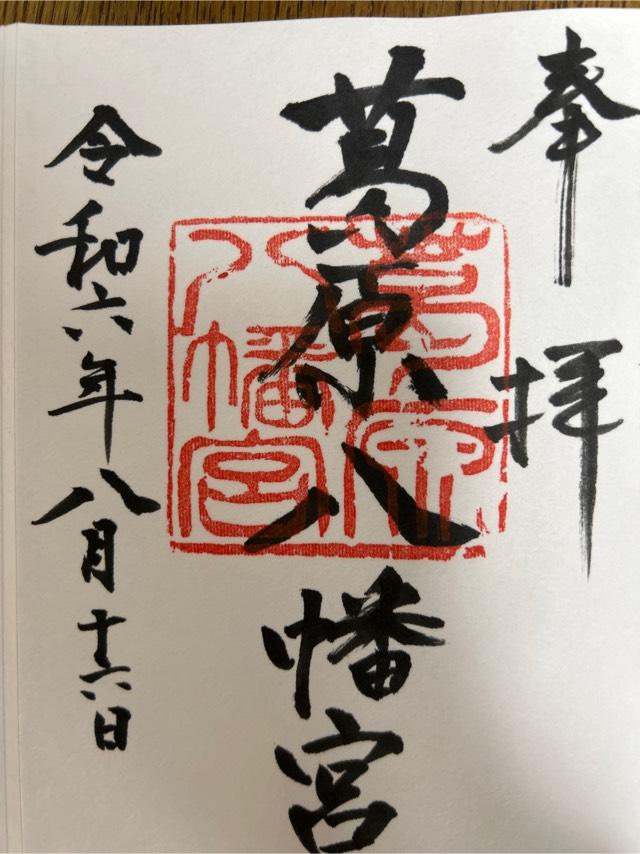 奉拝
葛原八幡宮
葛原八幡宮
令和六年八月十六日